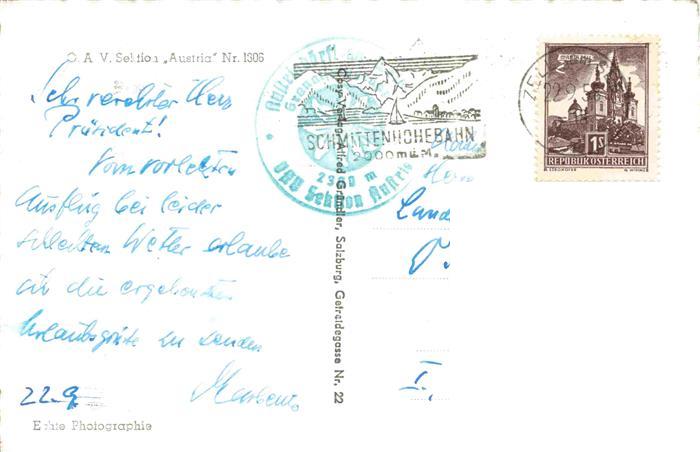 Ö. A. V. Sektion „Austria" Nr. 1306
Sehr verehrter Herr
Präsident!
Vom vorletzten
Ausflug bei leider
schlechten Wetter erlaube
ich die ergebensten
Urlaubsgrüße zu senden
22.9.
Echte Photographie
Verlag Alfred Gründler, Salzburg, Getreidegasse Nr. 22
2300 m
ÖAV Sektion Austria
SCHMITTENHÖHEBAHN
2000 m ü. M.
ZELL
22.9
1S
REPUBLIK ÖSTERREICH
Land
I.